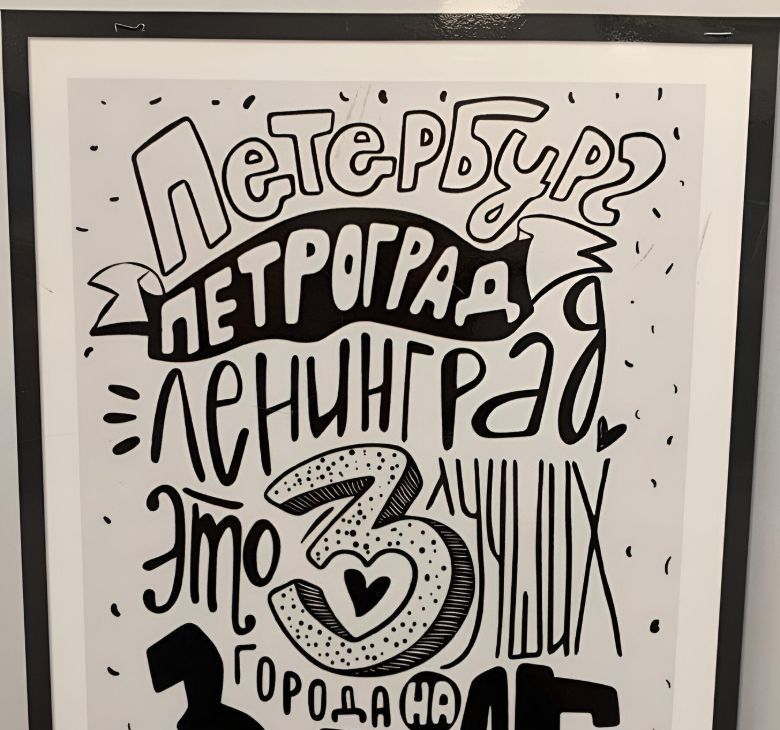 Петербург
ПЕТРОГРАД
Ленинград
Это 3 лучших
ГОРОДА НА